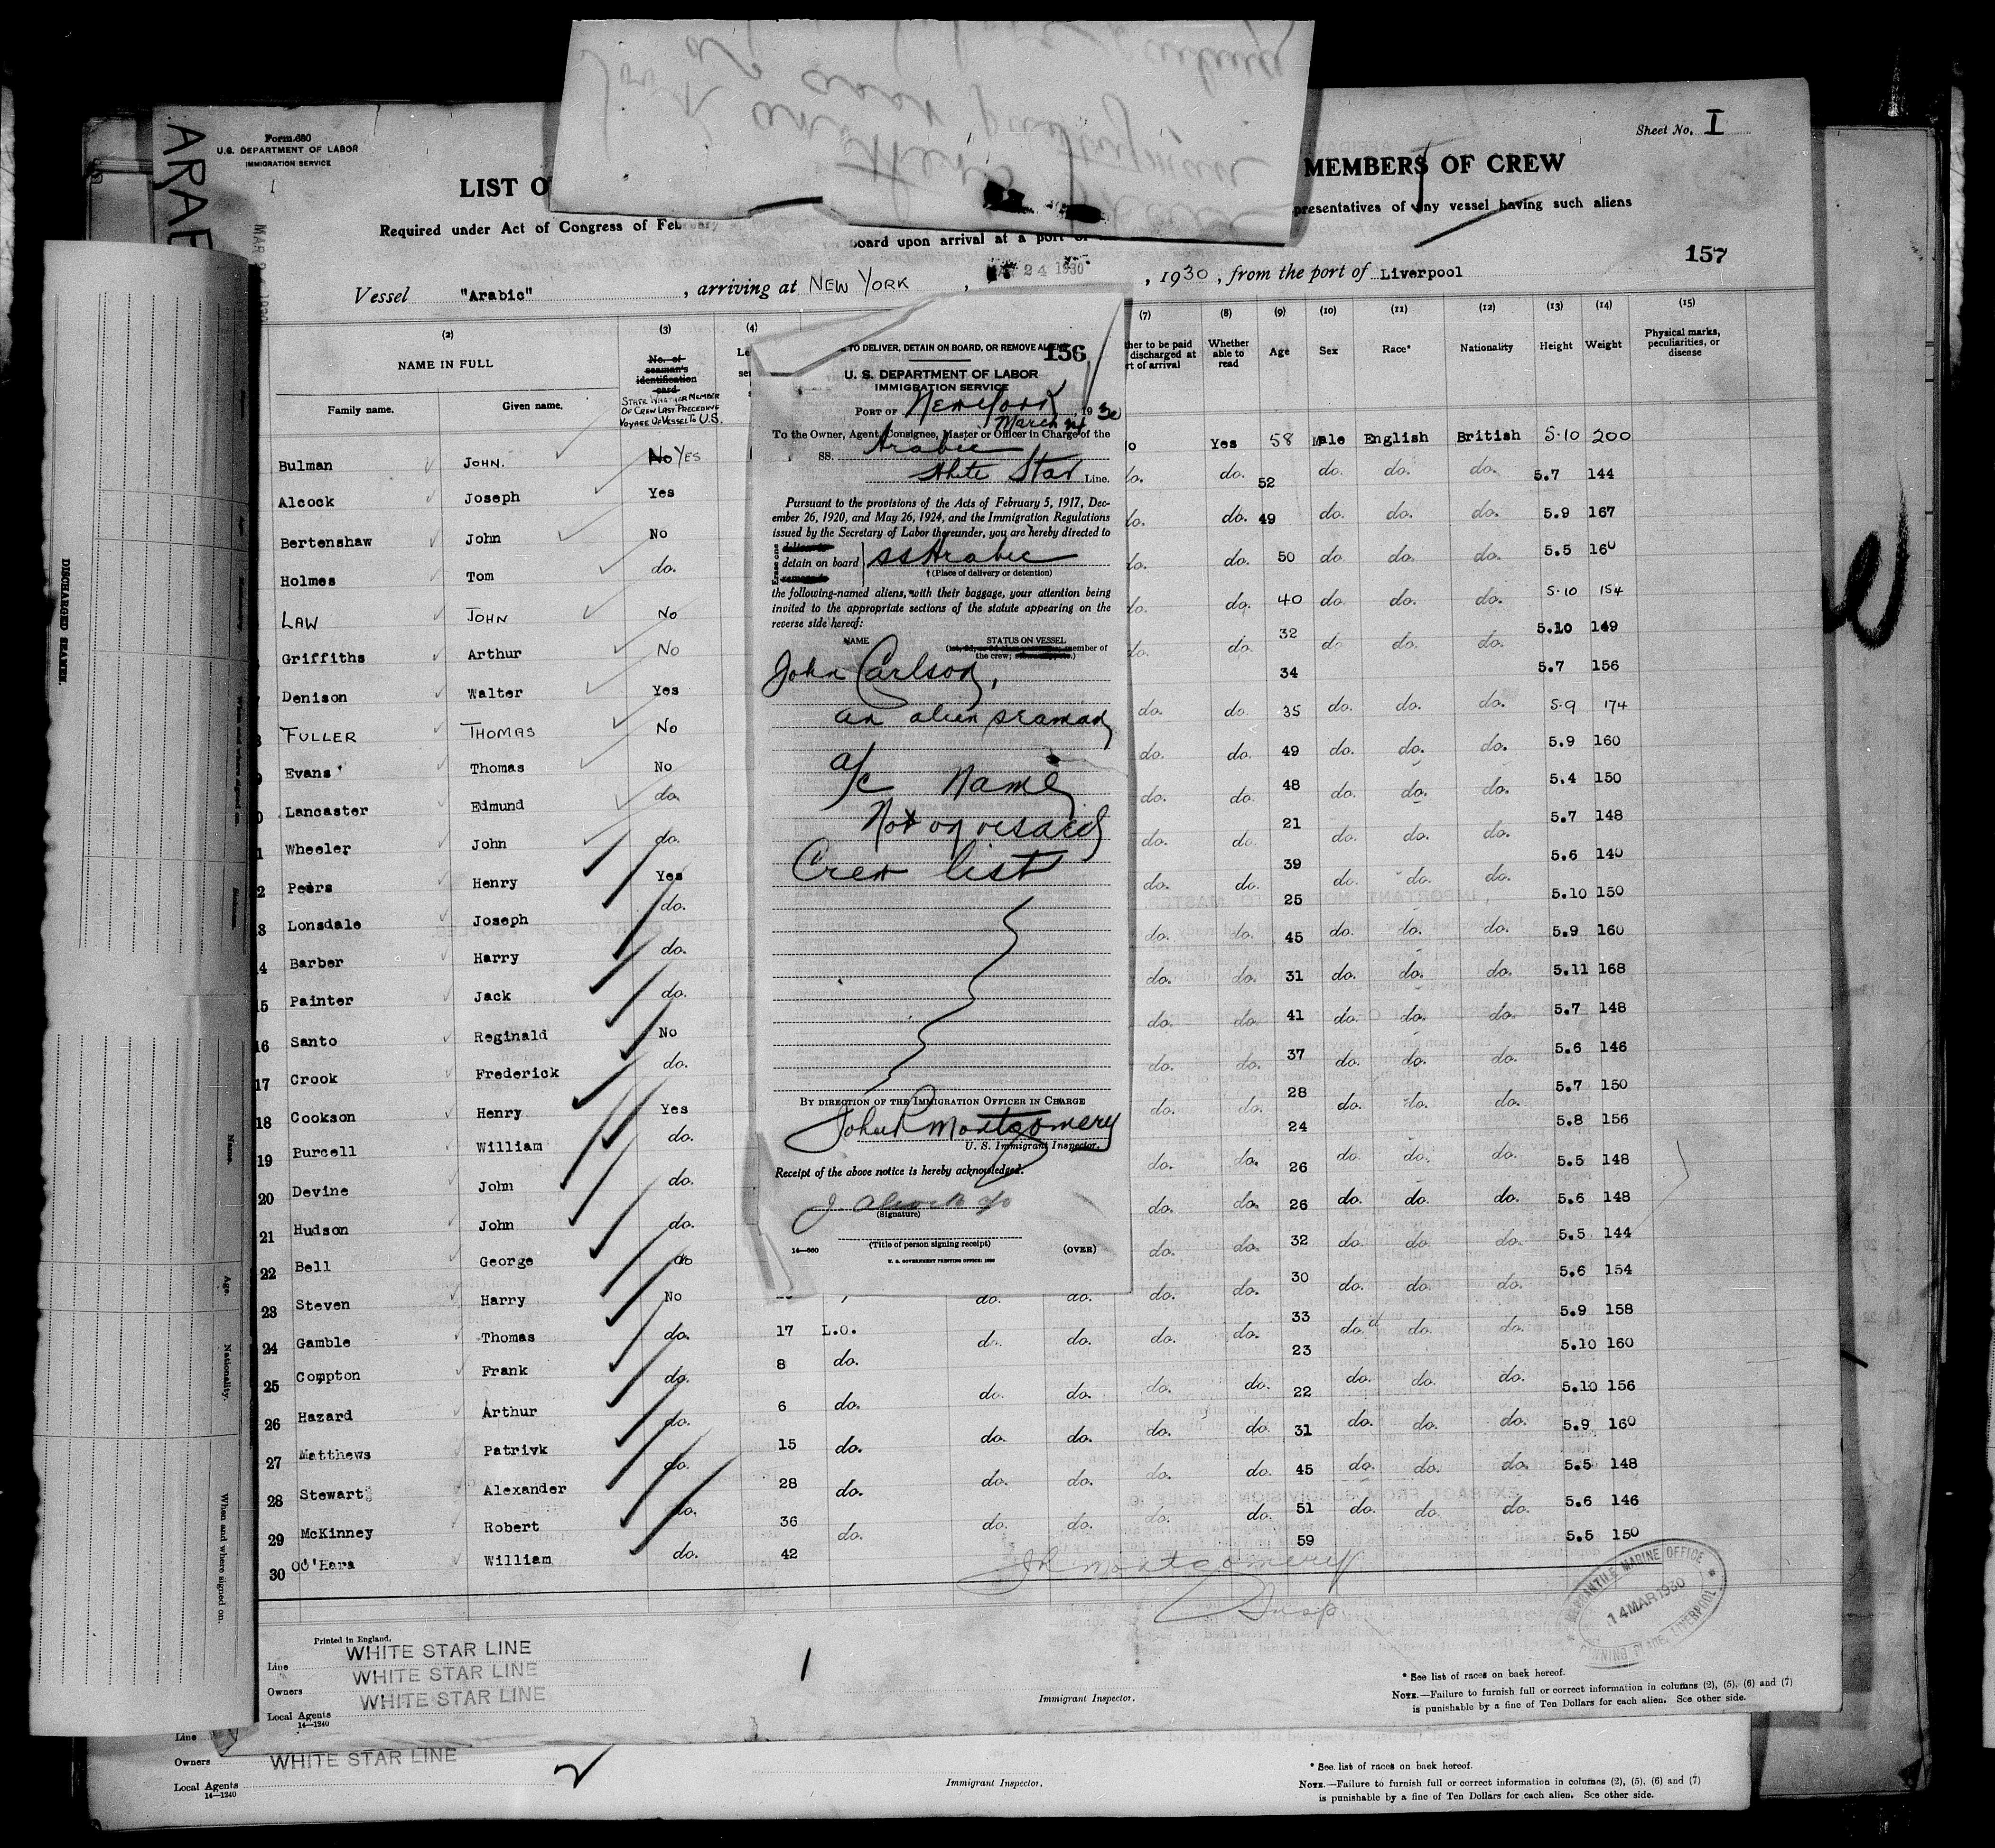 Form 680
U.S. DEPARTMENT OF LABOR
IMMIGRATION SERVICE
Sheet No. I
LIST O MEMBERS OF CREW
Required under Act of Congress of February board upon arrival at a port of presentatives of any vessel having such aliens
157
Vessel "Arabic", arriving at NEW YORK, 24 1930, 1930, from the port of Liverpool
(2) (3) (4) (7) (8) (9) (10) (11) (12) (13) (14) (15)
NAME IN FULL
Family name. Given name.
No. of seaman's identification card
STATE WHETHER MEMBER OF CREW LAST PRECEDING VOYAGE OF VESSEL TO U.S.
Whether able to read Age Sex Race* Nationality Height Weight Physical marks, peculiarities, or disease
Bulman JOHN. No YES Yes 58 Male English British 5.10 200
Alcock Joseph Yes do. 52 do. do. do. 5.7 144
Bertenshaw John No do. 49 do. do. do. 5.9 167
Holmes Tom do. do. 50 do. do. do. 5.5 160
LAW JOHN No do. 40 do. do. do. 5.10 154
Griffiths Arthur No do. 32 do. do. do. 5.10 149
Denison Walter Yes 34 5.7 156
FULLER THOMAS No do. do. 35 do. do. do. 5.9 174
Evans Thomas No do. do. 49 do. do. do. 5.9 160
Lancaster Edmund do. do. do. 48 do. do. do. 5.4 150
Wheeler John do. do. do. 21 do. do. do. 5.7 148
Peers Henry Yes do. do. 39 do. do. do. 5.6 140
Lonsdale Joseph do. 25 5.10 150
Barber Harry do. do. do. 45 do. do. do. 5.9 160
15 Painter Jack do. do. do. 31 do. do. do. 5.11 168
16 Santo Reginald No do. do. 41 do. do. do. 5.7 148
17 Crook Frederick do. do. do. 37 do. do. do. 5.6 146
18 Cookson Henry Yes do. do. 28 do. do. do. 5.7 150
19 Purcell William do. 24 5.8 156
20 Devine John do. do. do. 26 do. do. do. 5.5 148
21 Hudson John do. do. do. 26 do. do. do. 5.6 148
22 Bell George do do. do. 32 do. do. do. 5.5 144
23 Steven Harry No do. do. do. do. 30 do. do. do. 5.6 154
24 Gamble Thomas do. 17 L.O. do. do. do. do. 33 do. do. do. 5.9 158
25 Compton Frank do. 8 do. 23 5.10 160
26 Hazard Arthur do. 6 do. do. do. do. do. 22 do. do. do. 5.10 156
27 Matthews Patrivk do. 15 do. do. do. do. do. 31 do. do. do. 5.9 160
28 Stewart Alexander do. 28 do. do. do. do. do. 45 do. do. do. 5.5 148
29 McKinney Robert do. 36 do. do. do. do. do. 51 do. do. do. 5.6 146
30 OO'Hara William do. 42 59 5.5 150
JR Montgomery
Insp
MERCANTILE MARINE OFFICE
14 MAR 1930
LIVERPOOL
Printed in England.
Line WHITE STAR LINE
Owners WHITE STAR LINE
Local Agents WHITE STAR LINE
14—1240
1
Immigrant Inspector.
* See list of races on back hereof.
NOTE.—Failure to furnish full or correct information in columns (2), (5), (6) and (7)
is punishable by a fine of Ten Dollars for each alien. See other side.
Line
Owners WHITE STAR LINE
Local Agents
14—1240
2
Immigrant Inspector.
* See list of races on back hereof.
NOTE.—Failure to furnish full or correct information in columns (2), (5), (6) and (7)
is punishable by a fine of Ten Dollars for each alien. See other side.
TO DELIVER, DETAIN ON BOARD, OR REMOVE ALIENS
156
U. S. DEPARTMENT OF LABOR
IMMIGRATION SERVICE
PORT OF New York, 1930
March 24
To the Owner, Agent, Consignee, Master or Officer in Charge of the
SS. Arabic
White Star Line.
Pursuant to the provisions of the Acts of February 5, 1917, Dec-
ember 26, 1920, and May 26, 1924, and the Immigration Regulations
issued by the Secretary of Labor thereunder, you are hereby directed to
Erase one
detain on board SS Arabic
† (Place of delivery or detention)
the following-named aliens, with their baggage, your attention being
invited to the appropriate sections of the statute appearing on the
reverse side hereof:
NAME STATUS ON VESSEL
member of
the crew;
John Carlson,
an alien seaman
a/c Name
Not on visaed
Crew list
BY DIRECTION OF THE IMMIGRATION OFFICER IN CHARGE
John R Montgomery
U. S. Immigrant Inspector.
Receipt of the above notice is hereby acknowledged.
(Signature)
(Title of person signing receipt)
14—660 (OVER)
U. S. GOVERNMENT PRINTING OFFICE:
DISCHARGED SEAMEN.
Name. Age. Nationality. When and where signed on.